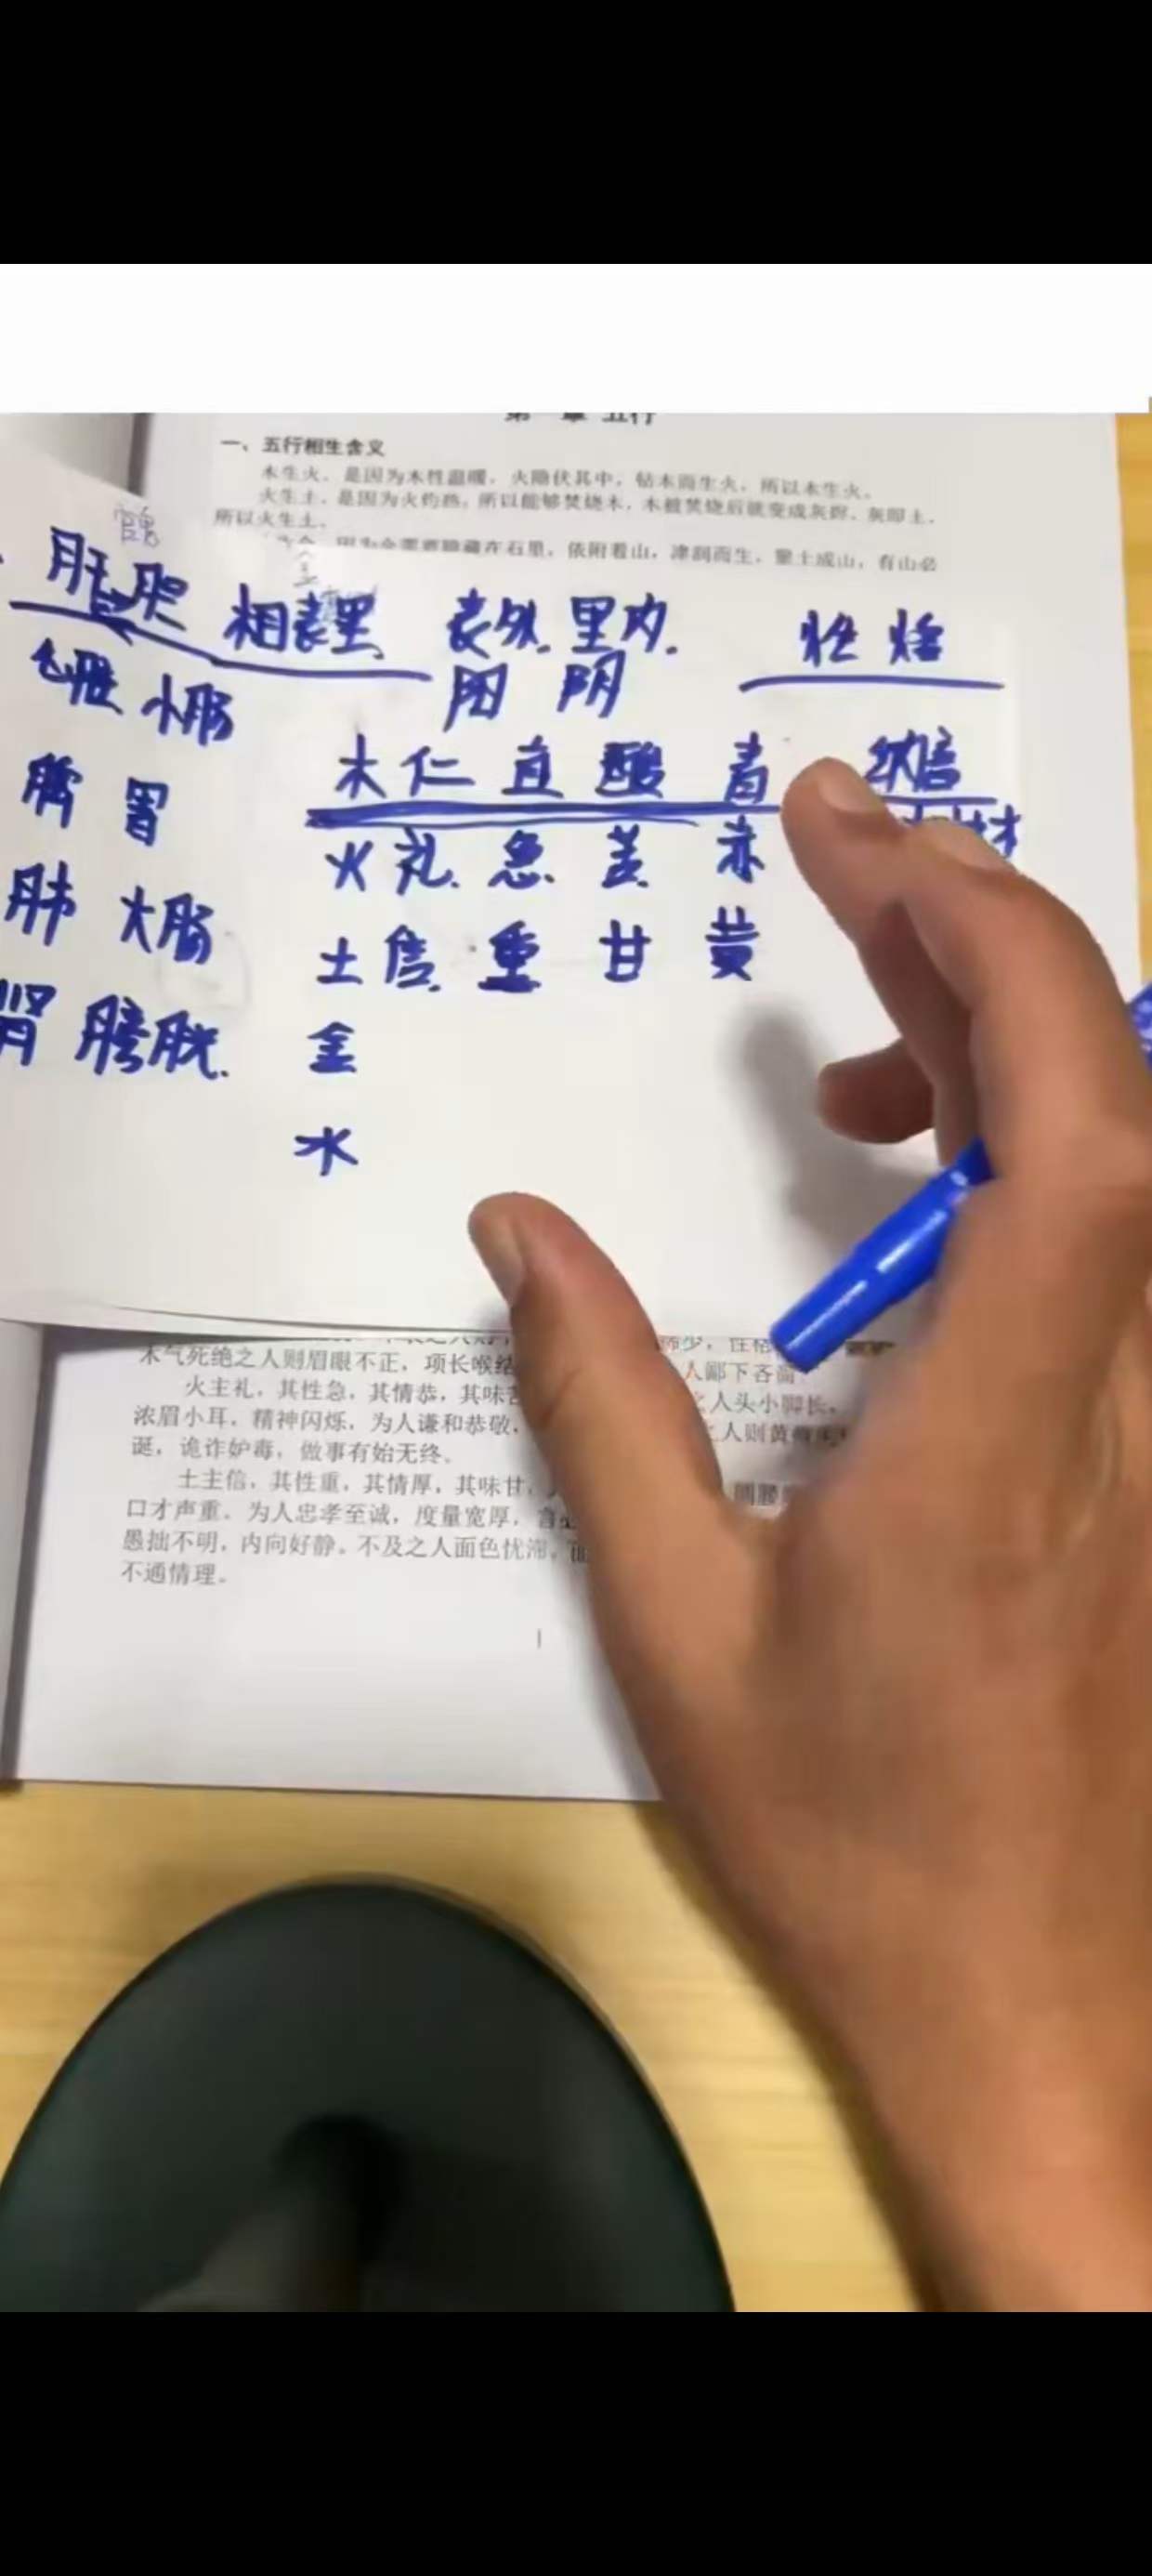 一、五行相生含义
木生火，是因为木性温暖，火隐伏其中，钻木而生火，所以木生火。
火生土，是因为火灼热，所以能够焚烧木，木被焚烧后就变成灰烬，灰即土，
所以火生土。
依附着山，津润而生，聚土成山，有山必
肝 胆 相表里 表外 里内
阳 阴
小肠
木 仁 直 酸 青
脾 胃
火 礼 急 苦 赤
肺 大肠
土 信 重 甘 黄
肾 膀胱
金
水
木气死绝之人则眉眼不正，项长喉结
人鄙下吝啬
火主礼，其性急，其情恭，其味苦
人头小脚长，
浓眉小耳，精神闪烁，为人谦和恭敬，
人则黄
诞，诡诈妒毒，做事有始无终。
土主信，其性重，其情厚，其味甘，
口才声重。为人忠孝至诚，度量宽厚，言必
愚拙不明，内向好静。不及之人面色忧滞，
不通情理。
1